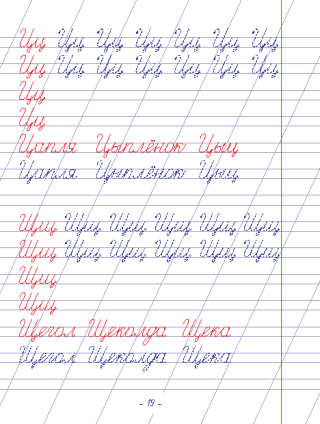 Цц Цц Цц Цц Цц Цц Цц
Цц Цц Цц Цц Цц Цц Цц
Цц
Цц
Цапля Цыплёнок Цыц
Цапля Цыплёнок Цыц
Щщ Щщ Щщ Щщ Щщ Щщ
Щщ Щщ Щщ Щщ Щщ Щщ
Щщ
Щщ
Щегол Щеколда Щека
Щегол Щеколда Щека
- 19 -